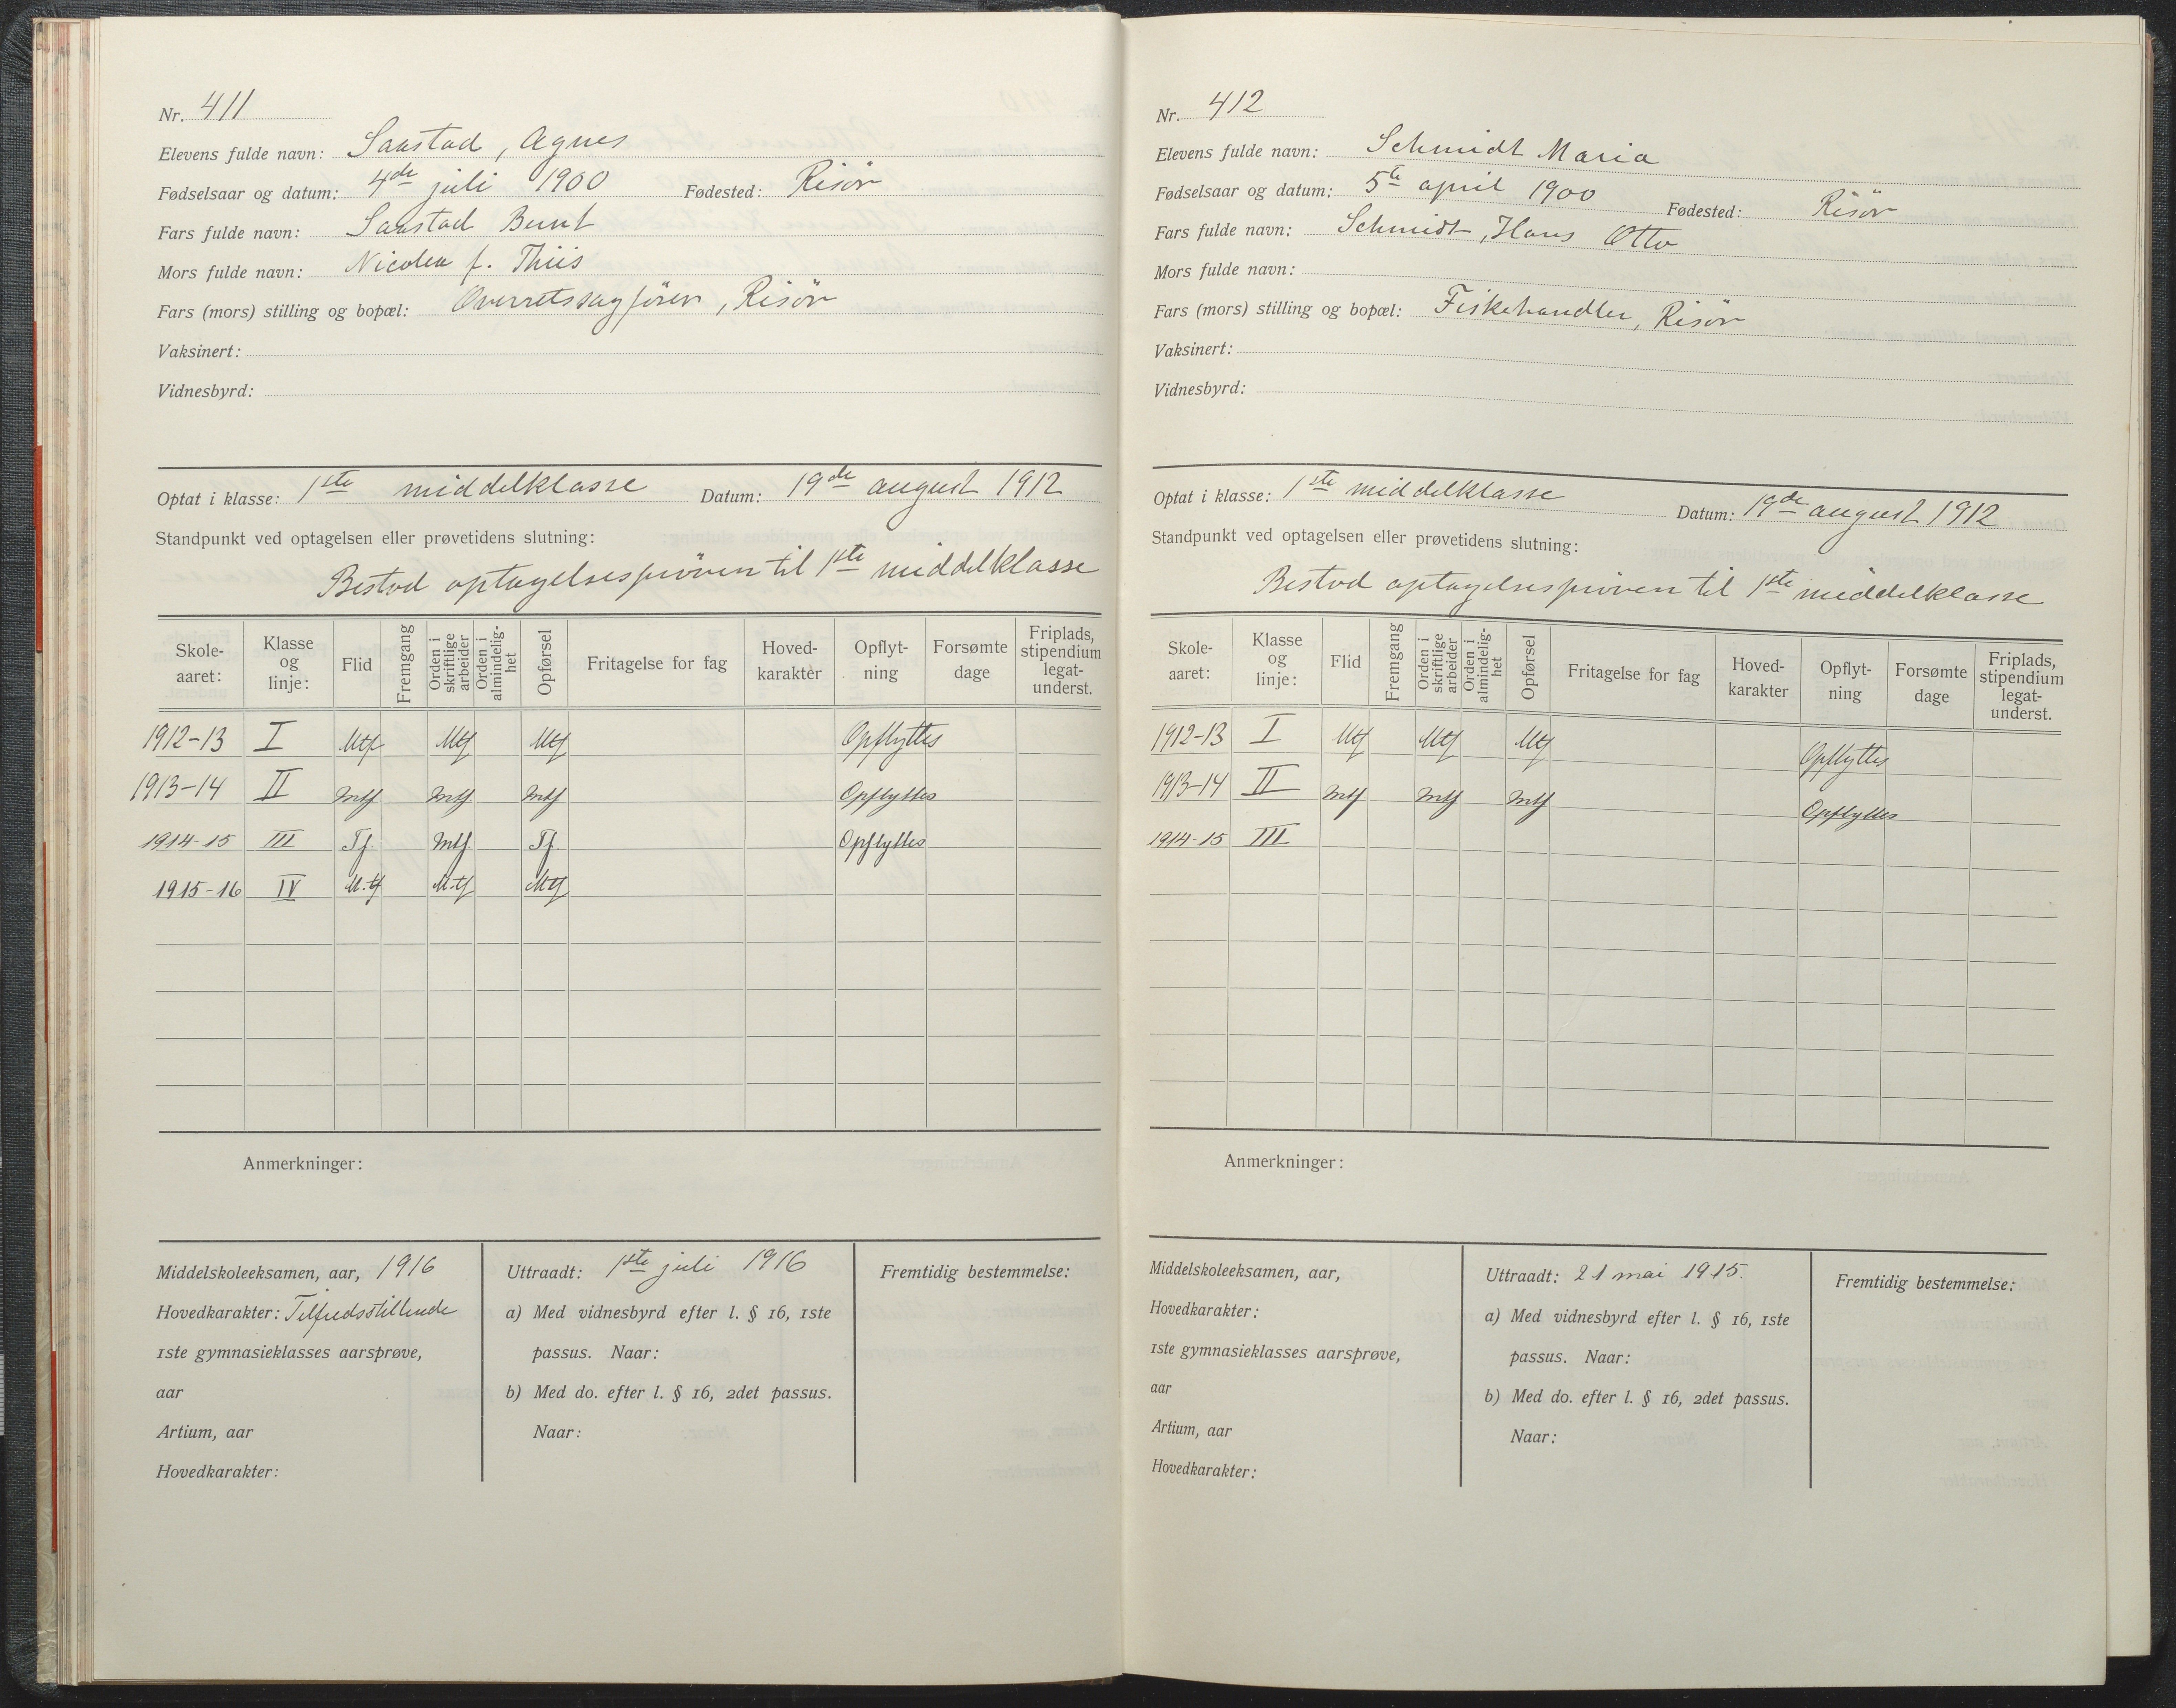 Nr. 411
Elevens fulde navn: Saastad, Agnes
Fødselsaar og datum: 4de juli 1900 Fødested: Risör
Fars fulde navn: Saastad Bernt
Mors fulde navn: Nicolea f. Thiis
Fars (mors) stilling og bopæl: Overretssagförer, Risör
Vaksinert:
Vidnesbyrd:
Optat i klasse: 1ste middelklasse Datum: 19de august 1912
Standpunkt ved optagelsen eller prøvetidens slutning:
Bestod optagelsespröven til 1ste middelklasse
Skole-aaret: Klasse og linje: Flid Fremgang Orden i skriftlige arbeider Orden i almindelig-het Opførsel Fritagelse for fag Hoved-karakter Opflyt-ning Forsømte dage Friplads, stipendium legat-underst.
1912-13 I Mtf Mtf Mtf Opflyttes
1913-14 II Mtf Mtf Mtf Opflyttes
1914-15 III Tf. Mtf Tf. Opflyttes
1915-16 IV M.tf M.tf Mtf
Anmerkninger:
Middelskoleeksamen, aar, 1916
Hovedkarakter: Tilfredsstillende
1ste gymnasieklasses aarsprøve,
aar
Artium, aar
Hovedkarakter:
Uttraadt: 1ste juli 1916
a) Med vidnesbyrd efter l. § 16, 1ste
passus. Naar:
b) Med do. efter l. § 16, 2det passus.
Naar:
Fremtidig bestemmelse:
Nr. 412
Elevens fulde navn: Schmidt Maria
Fødselsaar og datum: 5te april 1900 Fødested: Risör
Fars fulde navn: Schmidt, Hans Otto
Mors fulde navn:
Fars (mors) stilling og bopæl: Fiskehandler, Risör
Vaksinert:
Vidnesbyrd:
Optat i klasse: 1ste middelklasse Datum: 19de august 1912
Standpunkt ved optagelsen eller prøvetidens slutning:
Bestod optagelsespröven til 1ste middelklasse
Skole-aaret: Klasse og linje: Flid Fremgang Orden i skriftlige arbeider Orden i almindelig-het Opførsel Fritagelse for fag Hoved-karakter Opflyt-ning Forsømte dage Friplads, stipendium legat-underst.
1912-13 I Mtf Mtf Mtf Opflyttes
1913-14 II Mtf Mtf Mtf Opflyttes
1914-15 III
Anmerkninger:
Middelskoleeksamen, aar,
Hovedkarakter:
1ste gymnasieklasses aarsprøve,
aar
Artium, aar
Hovedkarakter:
Uttraadt: 21 mai 1915.
a) Med vidnesbyrd efter l. § 16, 1ste
passus. Naar:
b) Med do. efter l. § 16, 2det passus.
Naar:
Fremtidig bestemmelse: